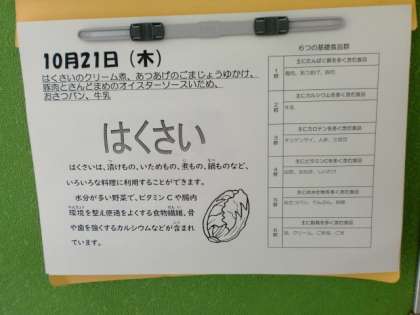 10月21日（木）
はくさいのクリーム煮、あつあげのごまじょうゆかけ、
豚肉とさんどまめのオイスターソースいため、
おさつパン、牛乳
はくさい
はくさいは、漬けもの、いためもの、煮もの、鍋ものなど、
いろいろな料理に利用することができます。
水分が多い野菜で、ビタミンCや腸内
環境を整え便通をよくする食物繊維、骨
や歯を強くするカルシウムなどが含まれ
ています。
６つの基礎食品群
1群
主にたんぱく質を多く含む食品
2群
主にカルシウムを多く含む食品
牛乳
3群
主にカロテンを多く含む食品
4群
主にビタミンCを多く含む食品
5群
主に炭水化物を多く含む食品
6群
主に脂肪を多く含む食品